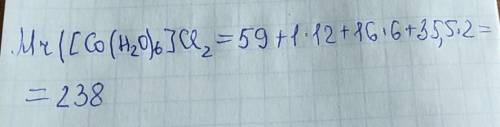 Mr([Co(H₂O)₆]Cl₂ = 59 + 1·12 + 16·6 + 35,5·2 =
= 238